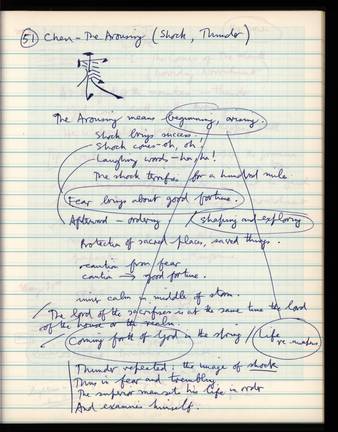 51 Chen - The Arousing (Shock, Thunder)
震
The Arousing means beginning, arising.
Shock brings success.
Shock comes - oh, oh!
Laughing words - ha, ha!
The shock terrifies for a hundred miles
Fear brings about good fortune.
Afterward - ordering / shaping and exploring
Protection of sacred places, sacred things.
reaction from fear
caution → good fortune.
inner calm in middle of storm.
/ The lord of the sacrifices is at the same time the lord
of the house or the realm.
/ Coming forth of God in the strong / Life re-makes
Thunder repeated: the image of shock
Thus in fear and trembling
The superior man sets his life in order
And examines himself.